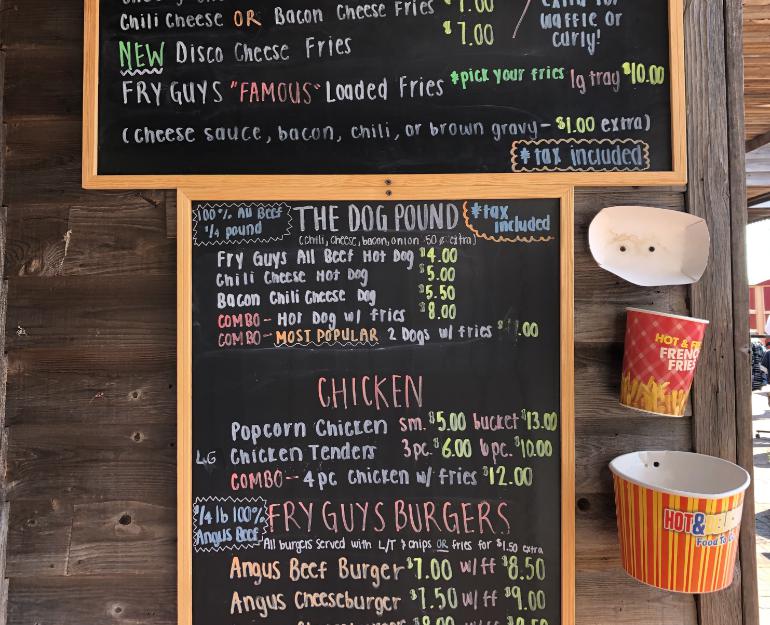 Chili Cheese OR Bacon Cheese Fries $7.00
NEW Disco Cheese Fries $7.00
waffle or
curly!
FRY GUYS "FAMOUS" Loaded Fries *pick your fries lg tray $10.00
(cheese sauce, bacon, chili, or brown gravy - $1.00 extra)
*tax included
100% All Beef
1/4 pound
THE DOG POUND
*tax
included
(chili, cheese, bacon, onion .50 ¢ extra)
Fry Guys All Beef Hot Dog $4.00
Chili Cheese Hot Dog $5.00
Bacon Chili Cheese Dog $5.50
COMBO - Hot Dog w/ fries $8.00
COMBO - MOST POPULAR 2 Dogs w/ fries
CHICKEN
Popcorn Chicken sm. $5.00 bucket $13.00
LG Chicken Tenders 3pc. $6.00 6pc. $10.00
COMBO - 4pc chicken w/ fries $12.00
1/4 lb 100%
Angus Beef
FRY GUYS BURGERS
All burgers served with L/T & chips OR fries for $1.50 extra
Angus Beef Burger $7.00 w/ff $8.50
Angus Cheeseburger $7.50 w/ff $9.00
HOT &
FRENC
FRIE
HOT&
Food To